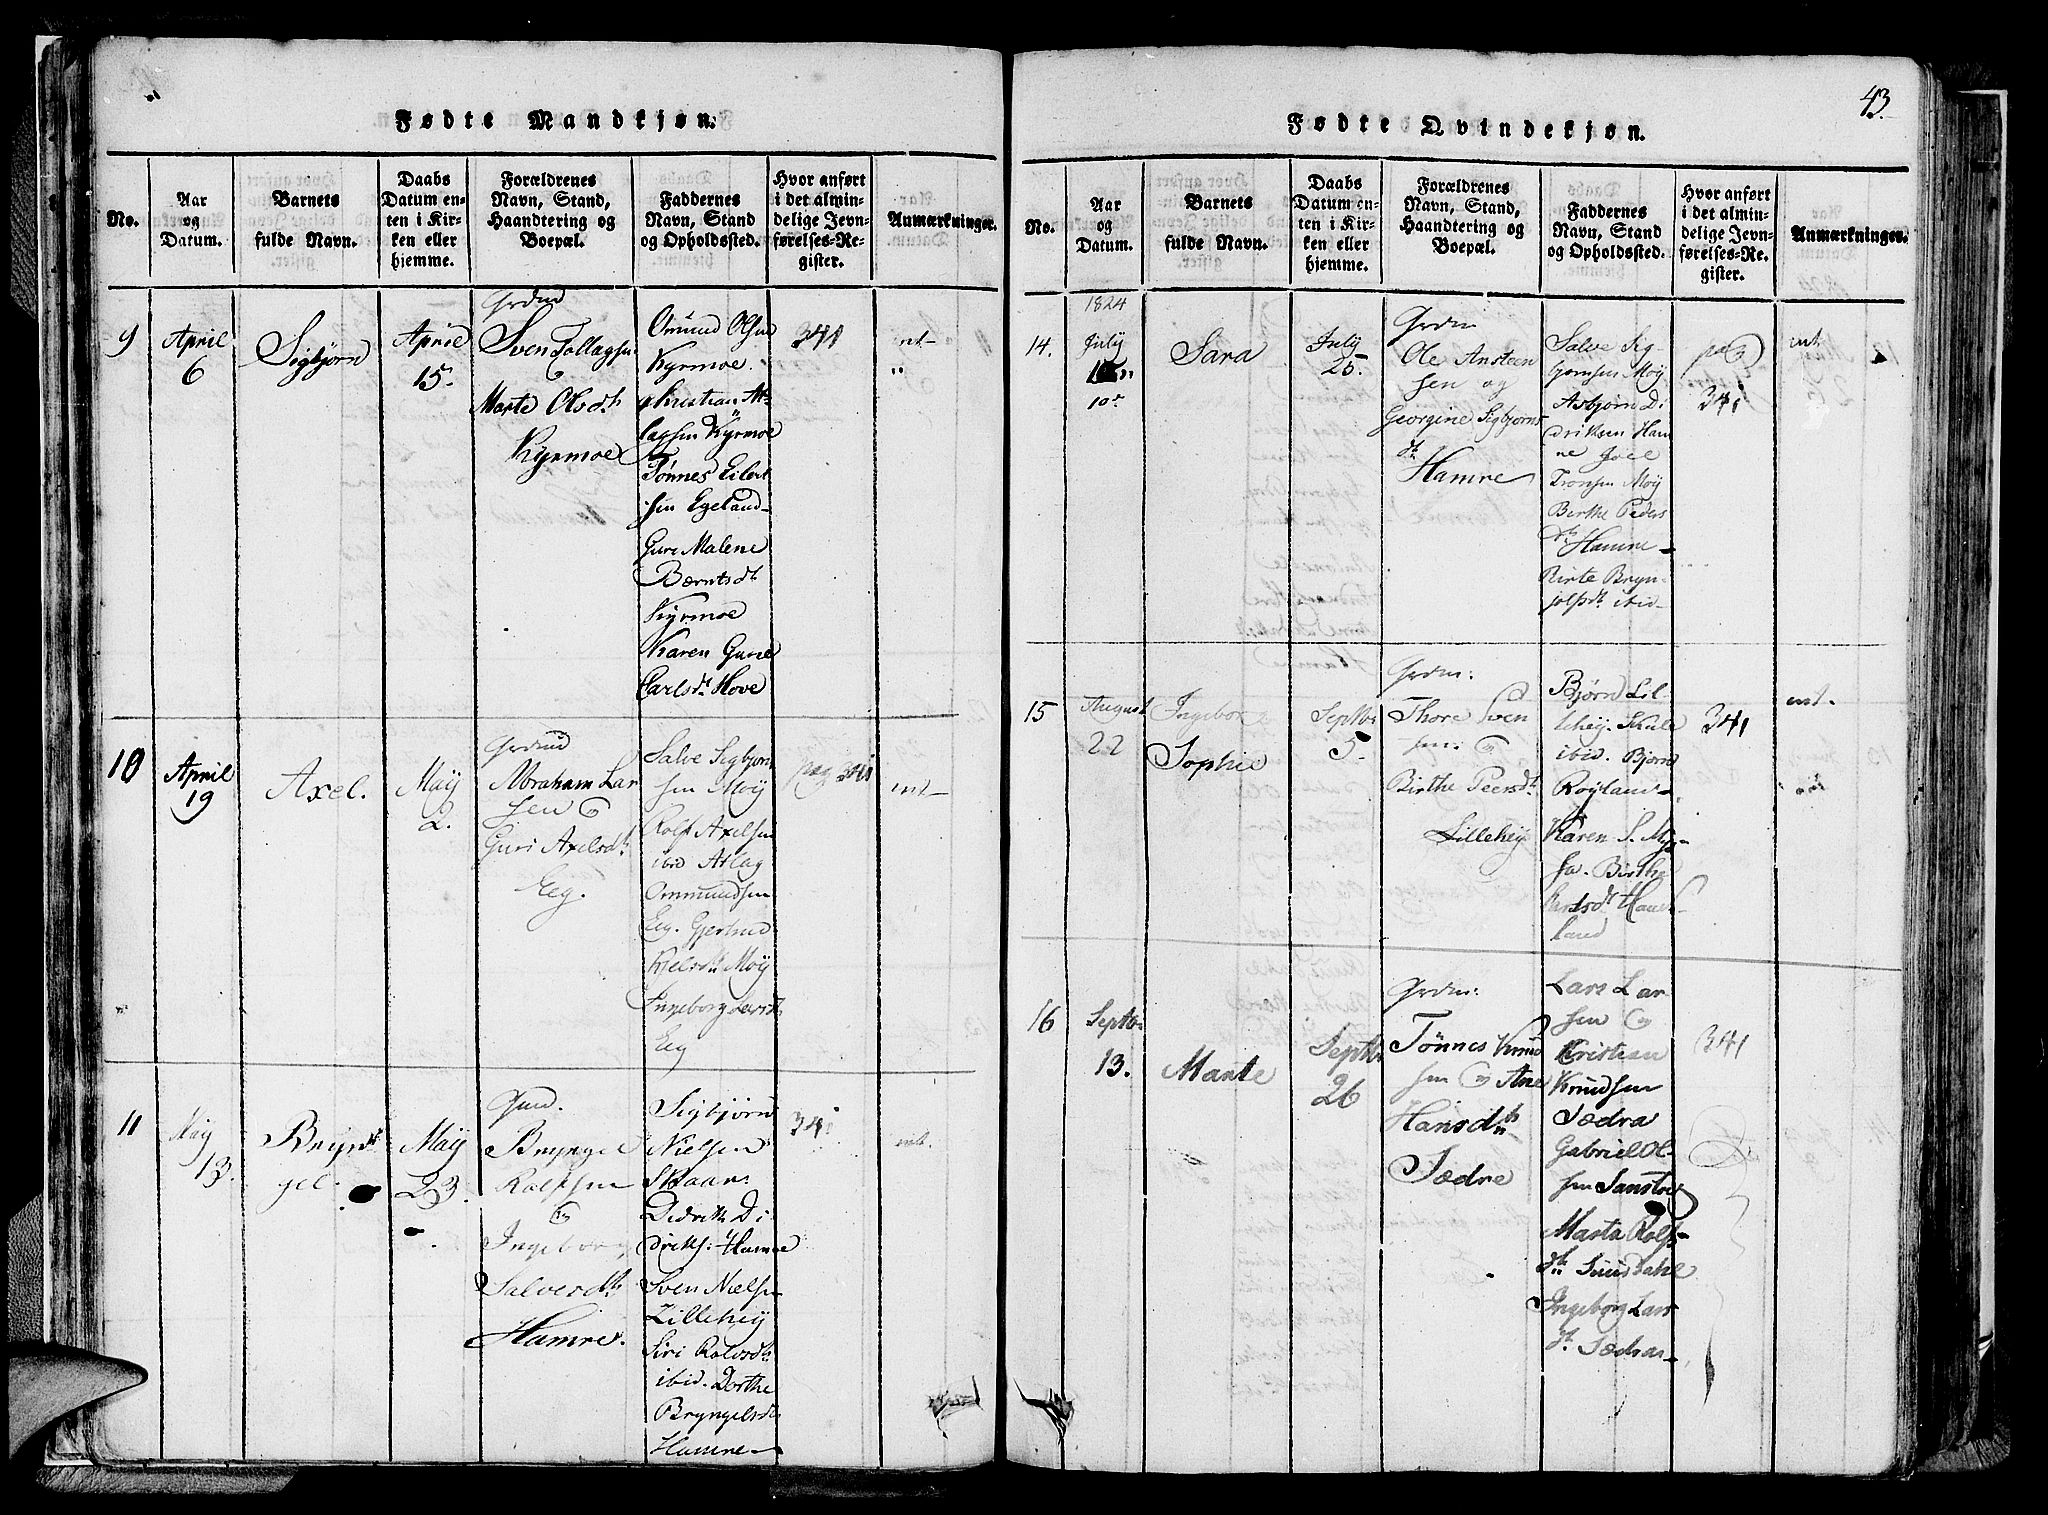 43.
Fødte Mandkjøn.
No.
Aar
og
Datum.
Barnets
fulde Navn.
Daabs
Datum en-
ten i Kir-
ken eller
hjemme.
Forældrenes
Navn, Stand,
Haandtering og
Boepæl.
Faddernes
Navn, Stand
og Opholdssted.
Hvor anført
i det almin-
delige Jevn-
førelses-Re-
gister.
Anmærkninger.
9
April
6
Sigbjørn
April
15.
Sven Tollagsen
Marte Olsdt
Kyrmoe
Omund Olsen
Kyrmoe.
Christian At-
lagsen Kyrmoe
Tønnes Eilert
sen Egeland
Guri Malene
Berntsdt
Kyrmoe
Karen Gurie
Carlsdt Hove
341
int-
"
10
April
19
Axel.
May
2.
Abraham Lar
sen og
Guri Axelsdt
Eeg.
Salve Sigbjørn
sen Moy
Rolf Axelsen
ibid Atlag
Ommundsen
Eeg. Gjertrud
Kjelsdt Moy
Ingeborg Larsdt
Eeg
pag 341
int-
11
May
13.
Bryn-
gel.
May
23.
Bryngel
Rolfsen
og
Ingeborg
Salvesdt
Hamre.
Sigbjørn
Nielsen
Skaar
Didrik Di-
driks: Hamre
Sven Nielsen
Lillehey
Siri Rolvsdt
ibid. Dorthe
Bryngelsdt
Hamre
341
int.
Fødte Qvindekjøn.
No.
Aar
og
Datum.
Barnets
fulde Navn.
Daabs
Datum en-
ten i Kir-
ken eller
hjemme.
Forældrenes
Navn, Stand,
Haandtering og
Boepæl.
Faddernes
Navn, Stand
og Opholdssted.
Hvor anført
i det almin-
delige Jevn-
førelses-Re-
gister.
Anmærkninger.
14.
1824
July
10de
Sara
July
25.
Ole Ansteen
sen og
Georgine Sigbjørns
dt
Hamre
Salve Sig-
bjørnsen Moy
Asbjørn Di
driksen Ham
re Joel
Tronsen Moy
Birthe Peders
dt Hamre
Birte Bryn-
jolfsdt ibid
pag
341
int
15
August
22
Ingebor
Sophie
Septbr
5.
Thore Sven
sen: og
Birthe Peersdt
Lillehey
Bjørn Lil-
lehey.
ibid. Bjørn
Røyland
Karen S.
Birthe
Carlsdt
land
341
int.
16
Septbr
13.
Marte
Septbr
26
Tønnes Knud
sen og Ane
Hansdt
Sædre
Lars Lar
sen og
Kristian
Knudsen
Sædra
Gabriel Ol-
sen
Marta Rolfs
dt
Ingeborg Lars
dt Sædra
341